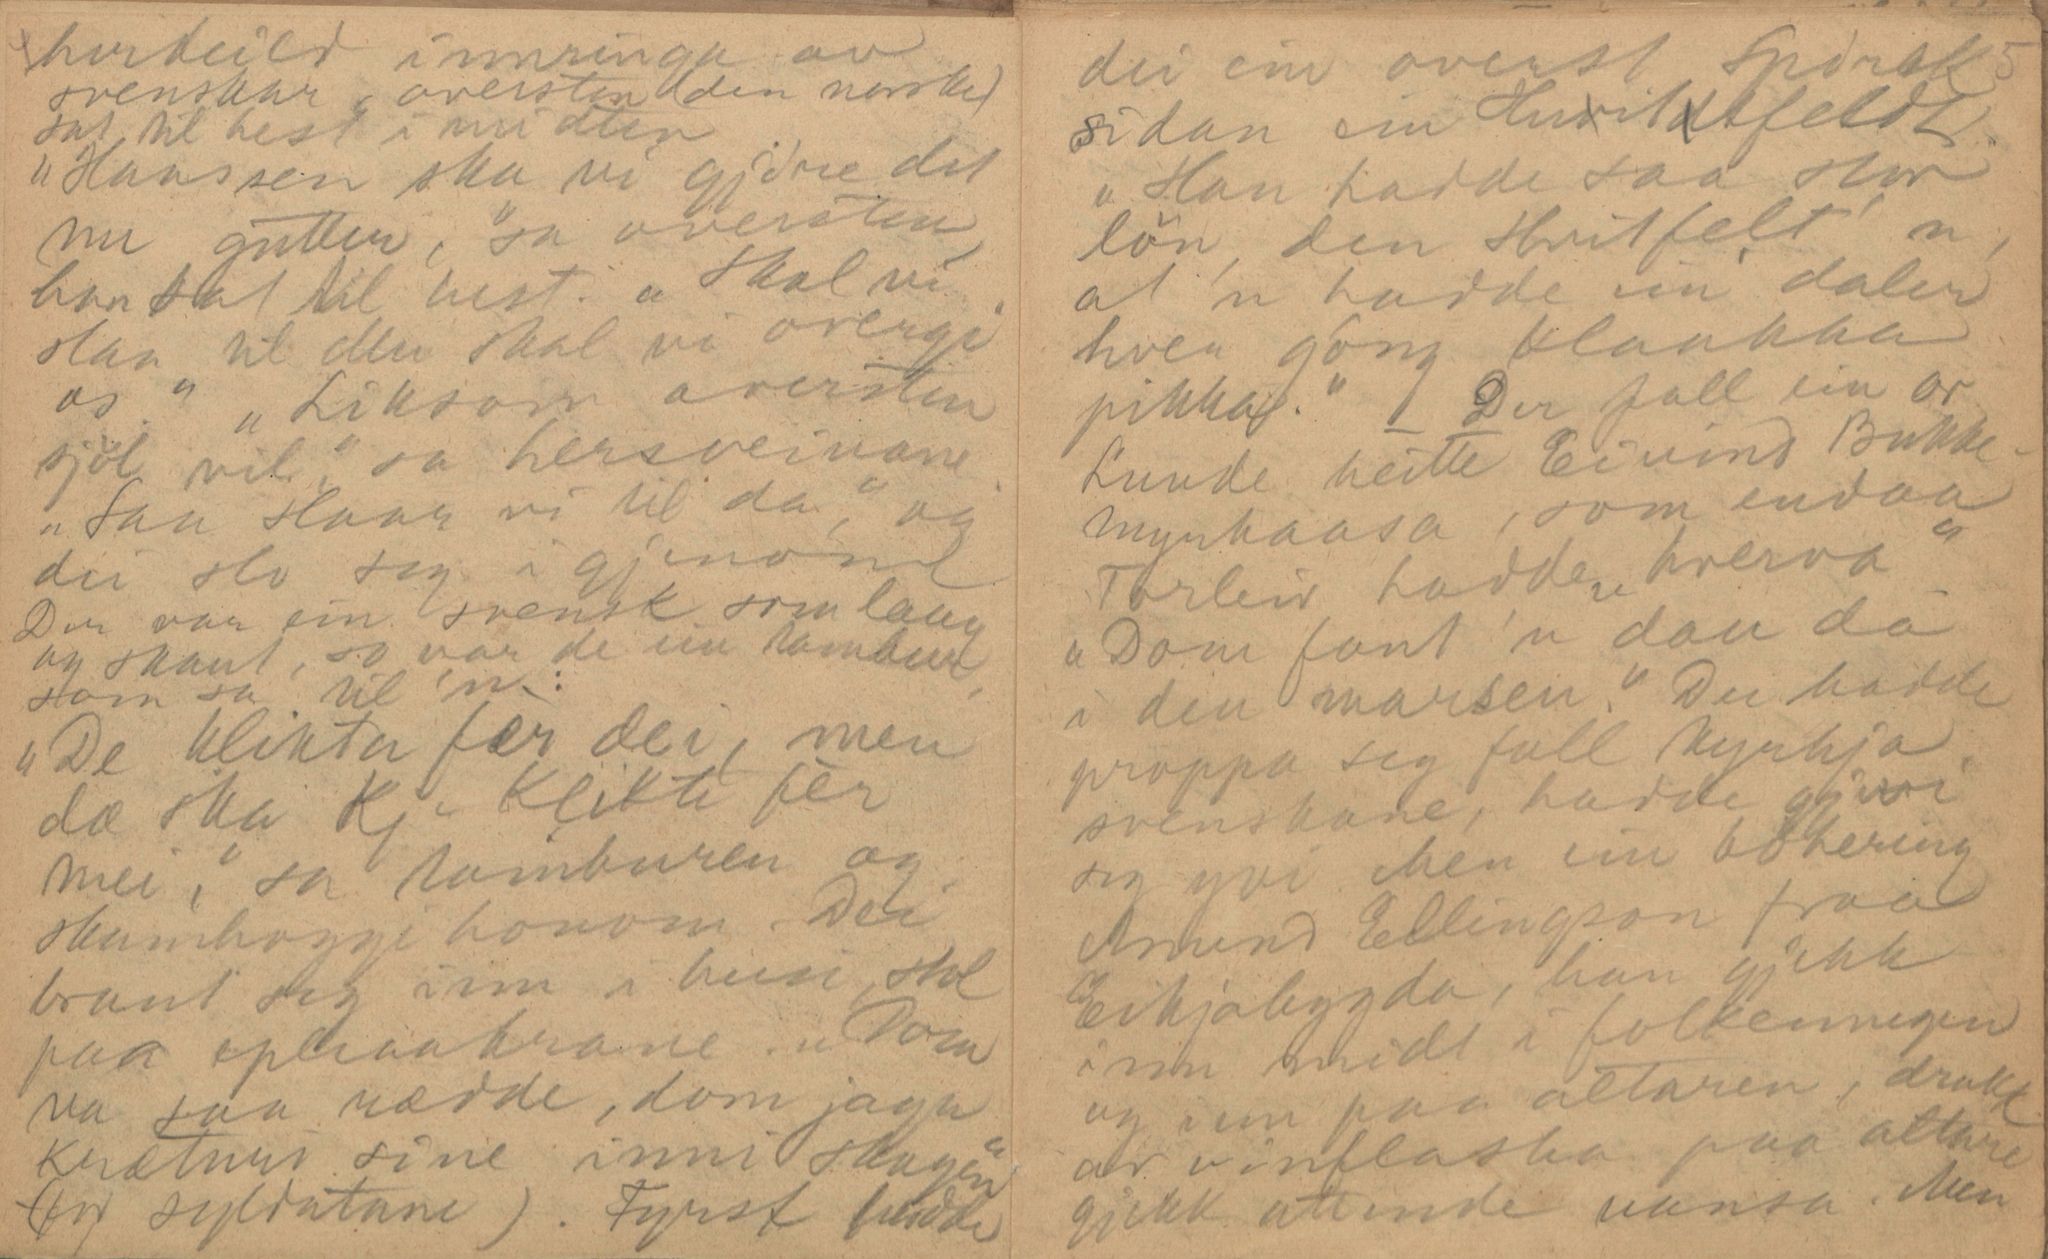 herdeild innringa av
svenskar, oversten (den norske)
sat til hest i midten
"Haassen ska vi gjöre det
nu gutter," sa oversten,
han sat til hest. "Skal vi
slaa til eller skal vi overgi
os." "Liksom oversten
sjöl vil," sa hersveinane.
"Saa slaar vi til da," og
dei slo seg i gjenom
Der var ein svensk som laag
og skaut, so var de ein tambur,
som sa til 'n:
"De klikta fær dei, men
dæ ska kj- klikte fèr
mei," sa tamburen og
skamhoggi honom. Dei
braut seg inn i husi, stol
paa eplaakrane. "Dom
va saa rædde, dom jaga
kræturi sine inni skogjen"
(for syldatane). Fyrst hadde
5
dei ein overst Spörck
sidan ein Huitfeldt.
"Han hadde saa stor
lön, den Hvitfelt'n,
at 'n hadde ein daler
hver gông klaakka
pikka." – Der fall ein av
Lunde heitte Eivind Bukke-
myrhaasa, som endaa
Torleiv hadde "hverva"
"Dom fant 'n dau dä
i den marsen." Dei hadde
proppa seg full kyrkja
svenskane, hadde gjevi
seg yvi. Men ein
Amund Ellingson fraa
Eikjabygda, han gjekk
inn midt i folkemugen
og inn paa altaren, drakk
av vinflaska paa altare
gjekk attende uansa. Men